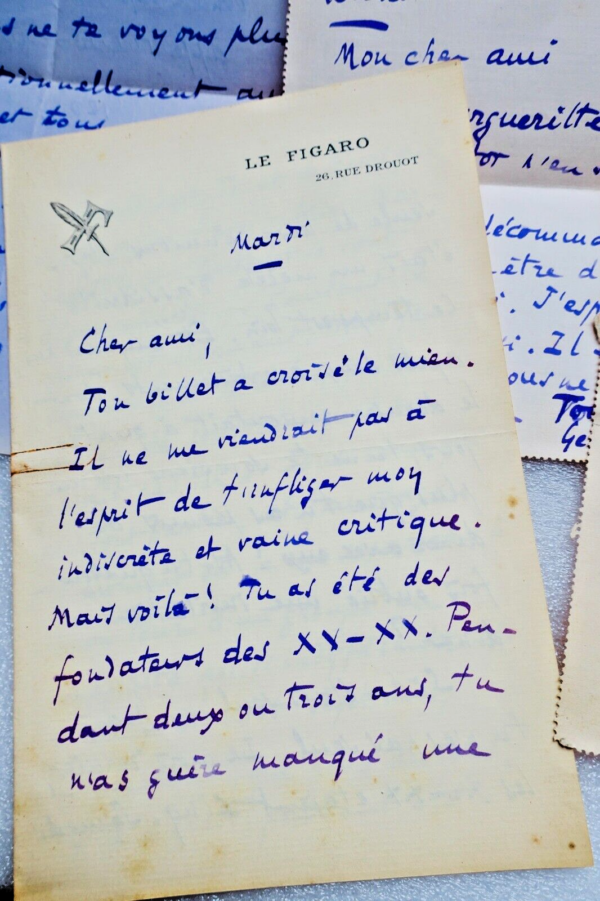 s ne te voyons plu
tionnellement au
et tous
Mon cher ami
rgueritte
tor s'en
décomma
être d
i. J'esp
i. Il
ous ne
To
Ge
LE FIGARO
26, RUE DROUOT
Mardi
Cher ami,
Ton billet a croisé le mien.
Il ne me viendrait pas à
l'esprit de t'infliger moy
indiscrète et vaine critique.
Mais voilà! Tu as été des
fondateurs des XX-XX. Pen-
dant deux ou trois ans, tu
n'as guère manqué une